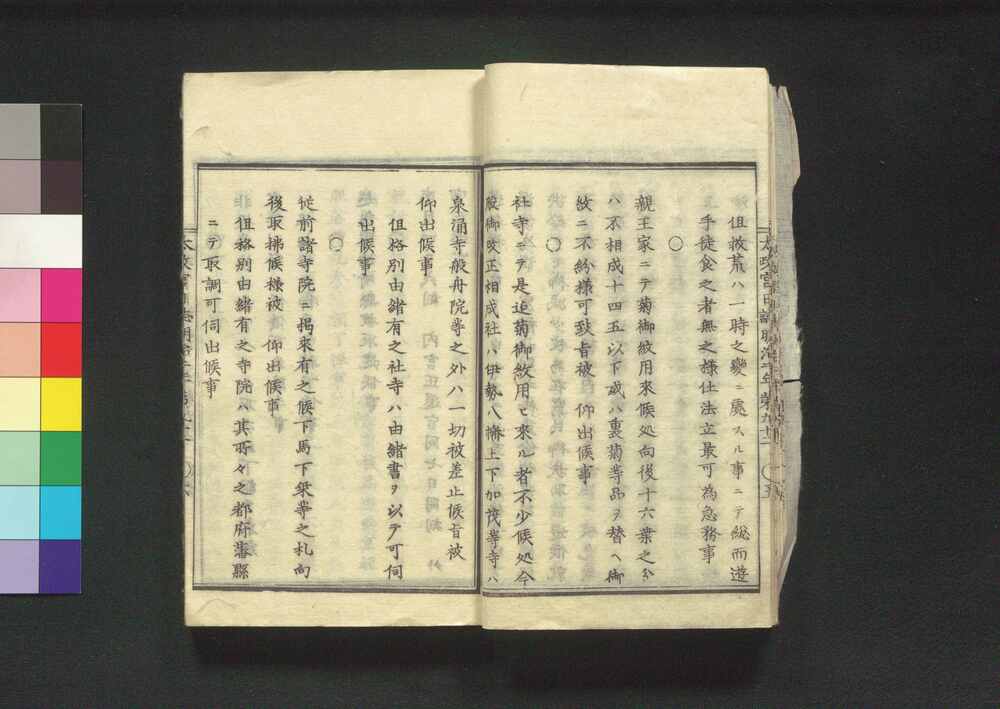 但救荒ハ一時之變ニ處スル事ニテ総而遊
手徒食之者無之様仕法立最可為急務事
○
親王家ニテ菊御紋用来候処向後十六葉之分
ハ不相成十四五以下或ハ裏菊等品ヲ替ヘ御
紋ニ不紛様可致旨被　仰出候事
○
社寺ニテ是迄菊御紋用ヒ来ル者不少候処今
般御改正相成社ハ伊勢八幡上下加茂等寺ハ
泉涌寺般舟院等之外ハ一切被差止候旨被
仰出候事
但格別由緒有之社寺ハ由緒書ヲ以テ可伺
出候事
○
従前諸寺院ニ掲来有之候下馬下乗等之札向
後取拂候様被　仰出候事
但格別由緒有之寺院ハ其所々之都府藩縣
ニテ取調可伺出候事